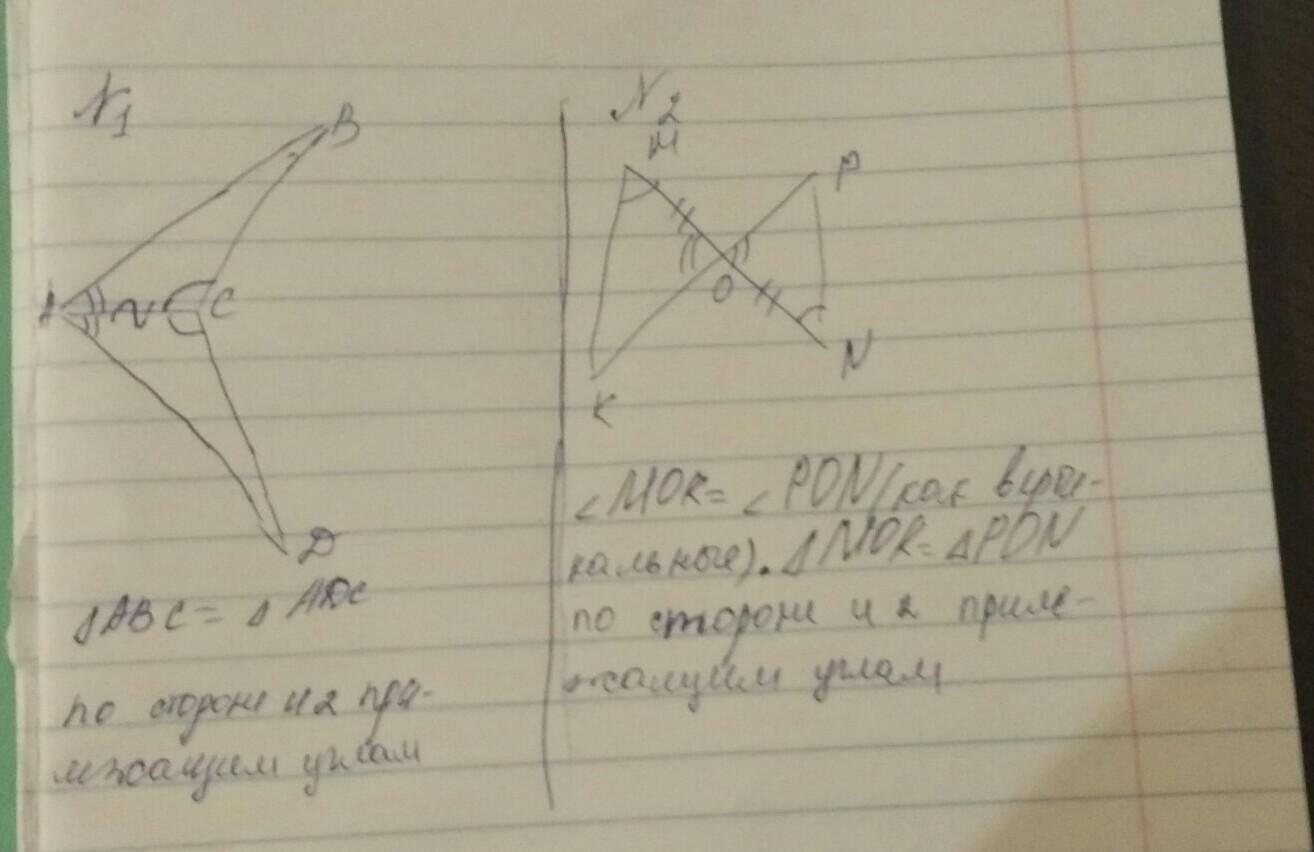 N1
B
A
C
D
△ABC = △ADC
по стороне и 2 при-
лежащим углам
N2
M
P
O
N
K
∠MOK = ∠PON (как верти-
кальные). △MOK = △PON
по стороне и 2 приле-
жащим углам